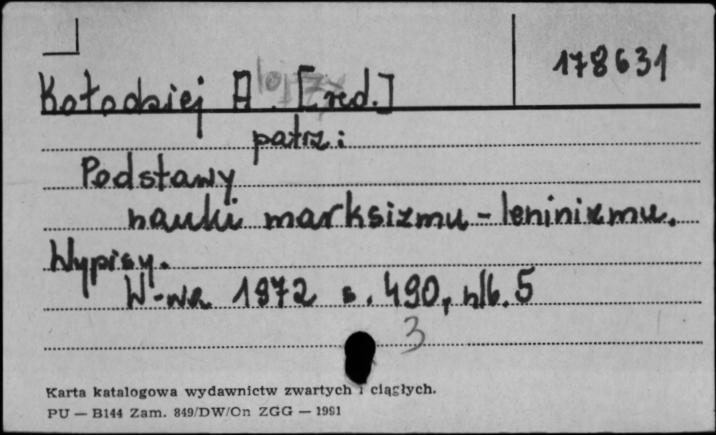 178631
Kołodziej A. [red.]
patrz:
Podstawy
nauki marksizmu-leninizmu.
Wypisy.
W-wa 1972 s. 490, nlb. 5
3
Karta katalogowa wydawnictw zwartych i ciągłych.
PU — B144 Zam. 849/DW/On ZGG — 1981